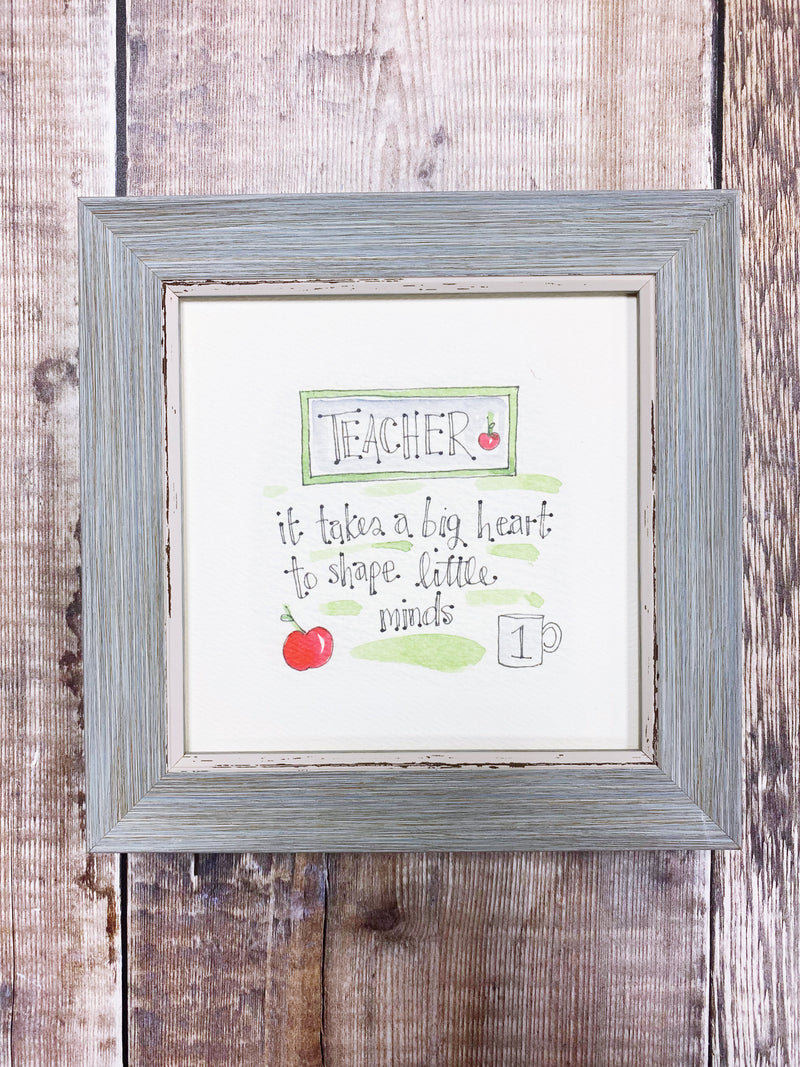 TEACHER
it takes a big heart
to shape little
minds
1